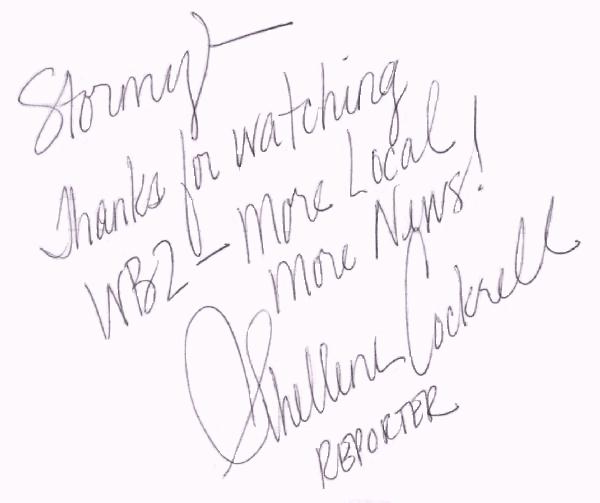 Stormy—
Thanks for watching
WB2 — More Local
More News!
Shellene Cockrell
REPORTER